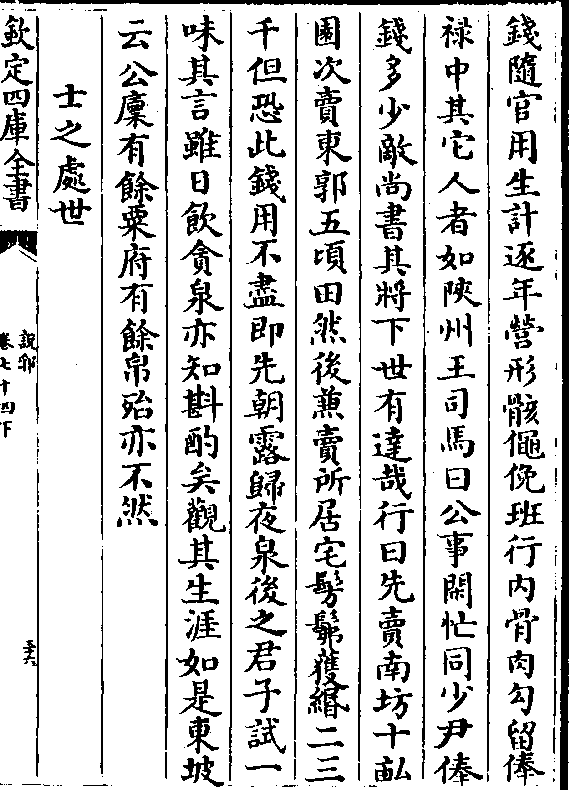 錢隨官用生計逐年營形骸僶俛班行内骨肉勾留俸
禄中其它人者如陜州王司馬曰公事閑忙同少尹俸
錢多少敵尚書其將下世有達哉行曰先賣南坊十畝
園次賣東郭五頃田然後兼賣所居宅髣髴獲緡二三
千但恐此錢用不盡即先朝露歸夜泉後之君子試一
味其言雖日飲貪泉亦知斟酌矣觀其生涯如是東坡
云公廩有餘粟府有餘帛殆亦不然
士之處世
欽定四庫全書
說郛
卷七十四下